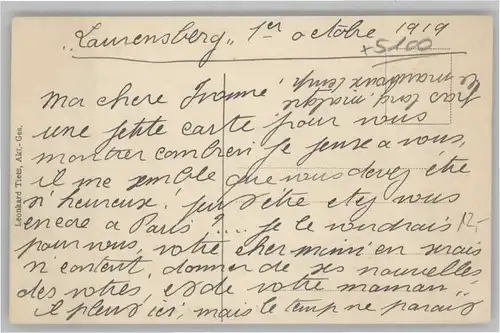 "Laurensberg" 1er octobre 1919
+5100
Ma chere Ivonne!
une petite carte pour vous
montrer combien je pense a vous,
il me semble que vous devez être
si heureux! peut être etez vous
encore a Paris?.... je le voudrais
12,-
pour vous, votre cher mimi en serais
si content, donner de ses nouvelles
des votres et de votre maman...
il pleut ici, mais le temp ne parait
pas long, malgré
le mauvaux temp
Leonhard Tietz, Akt.-Ges.